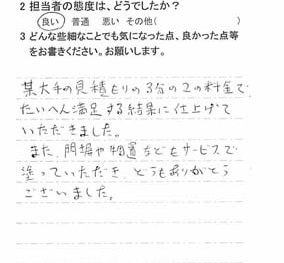 2 担当者の態度は、どうでしたか?
良い 普通 悪い その他(
3 どんな些細なことでも気になった点、良かった点等
をお書きください。お願いします。
某大手の見積もりの3分の2の料金で
たいへん満足する結果に仕上げて
いただきました。
また、門塀や物置などもサービスで
塗っていただき、どうもありがとう
ございました。